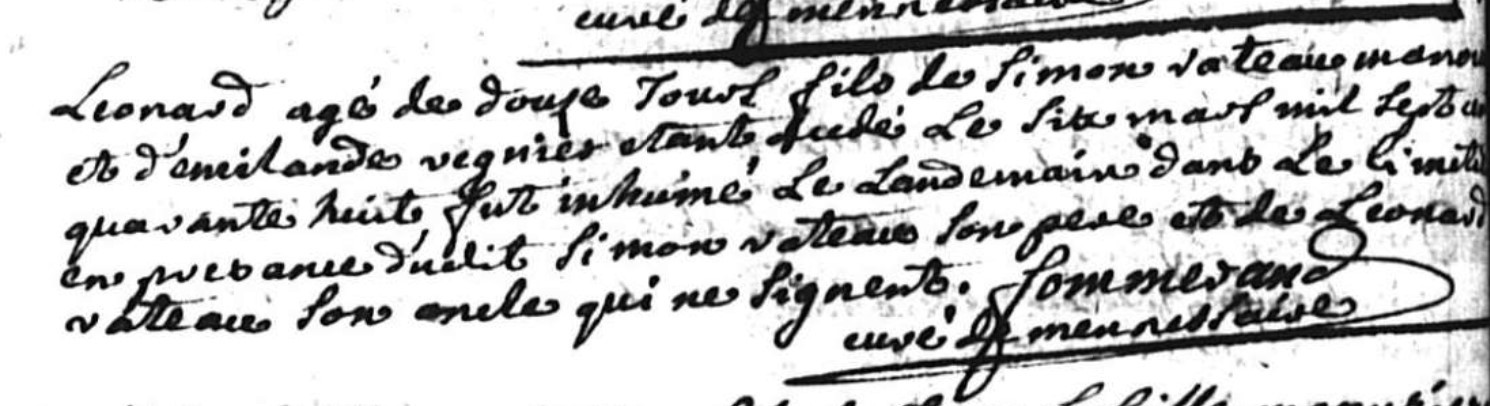 curé de mennessaire
Leonard agé de douse Jours fils de Simon vateau manou
et d'emilande regnier etant decedé Le six mars mil sept
quarante huit fut inhumé Le Landemain dans Le Cimeti
en presance dudit Simon vateau Son pere et de Leonard
vateau Son oncle qui ne Signent. Sommerand
curé de mennessaire